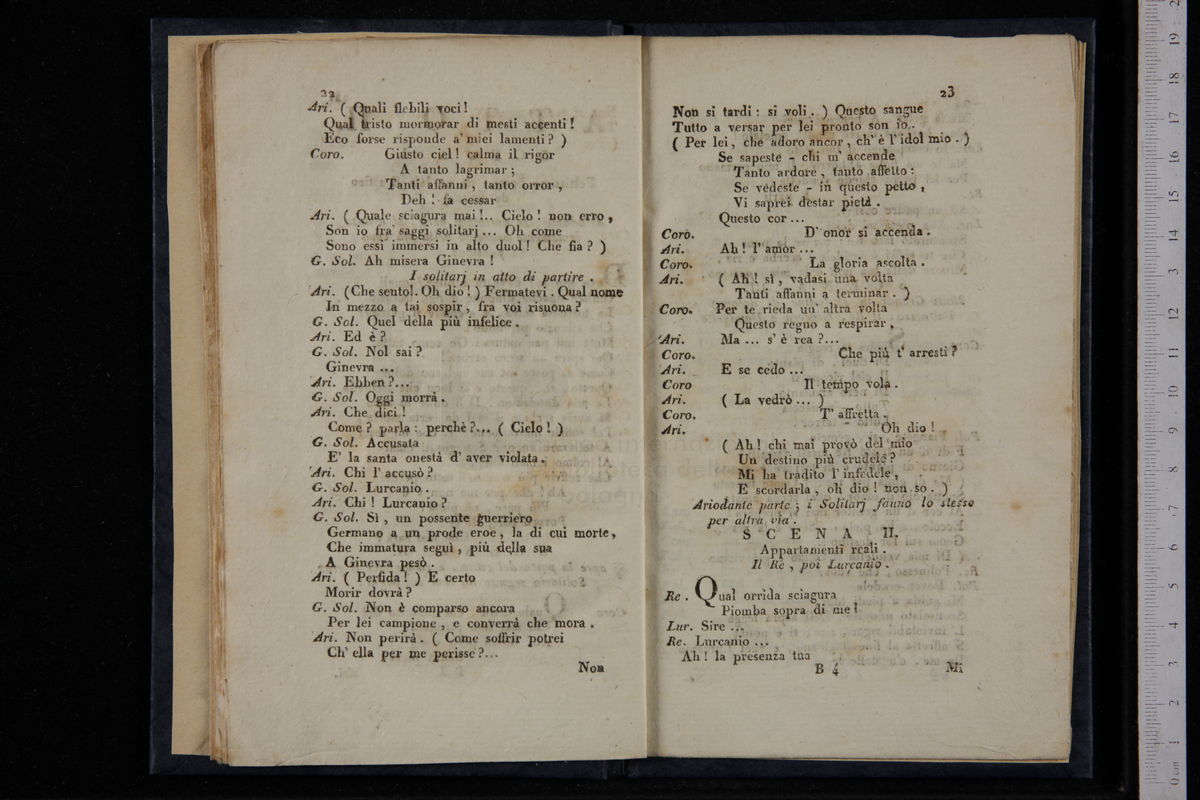 22
Ari. ( Quali flebili voci !
Qual tristo mormorar di mesti accenti !
Eco forse risponde a' miei lamenti ? )
Coro. Giusto ciel ! calma il rigor
A tanto lagrimar ;
Tanti affanni , tanto orror ,
Deh ! fa cessar
Ari. ( Quale sciagura mai !.. Cielo ! non erro ,
Son io fra saggi solitarj ... Oh come
Sono essi immersi in alto duol ! Che fia ? )
G. Sol. Ah misera Ginevra !
I solitarj in atto di partire .
Ari. (Che sento!. Oh dio ! ) Fermatevi . Qual nome
In mezzo a tai sospir , fra voi risuona ?
G. Sol. Quel della più infelice .
Ari. Ed è ?
G. Sol. Nol sai ?
Ginevra ...
Ari. Ebben ?...
G. Sol. Oggi morrà .
Ari. Che dici !
Come ? parla : perchè ?... ( Cielo ! )
G. Sol. Accusata
E' la santa onestà d' aver violata .
Ari. Chi l' accusò ?
G. Sol. Lurcanio .
Ari. Chi ! Lurcanio ?
G. Sol. Sì , un possente guerriero
Germano a un prode eroe , la di cui morte ,
Che immatura seguì , più della sua
A Ginevra pesò .
Ari. ( Perfida ! ) E certo
Morir dovrà ?
G. Sol. Non è comparso ancora
Per lei campione , e converrà che mora .
Ari. Non perirà . ( Come soffrir potrei
Ch' ella per me perisse ?...
Non
23
Non si tardi : si voli . ) Questo sangue
Tutto a versar per lei pronto son io .
( Per lei , che adoro ancor , ch' è l' idol mio . )
Se sapeste - chi m' accende
Tanto ardore , tanto affetto :
Se vedeste - in questo petto ,
Vi saprei destar pietà .
Questo cor ...
Coro. D' onor si accenda .
Ari. Ah ! l' amor ...
Coro. La gloria ascolta .
Ari. ( Ah ! sì , vadasi una volta
Tanti affanni a terminar . )
Coro. Per te rieda un' altra volta
Questo regno a respirar .
Ari. Ma ... s' è rea ?...
Coro. Che più t' arresti ?
Ari. E se cedo ...
Coro Il tempo vola .
Ari. ( La vedrò ... )
Coro. T' affretta .
Ari. Oh dio !
( Ah ! chi mai provò del mio
Un destino più crudele ?
Mi ha tradito l' infedele ,
E scordarla , oh dio ! non so . )
Ariodante parte ; i Solitarj fanno lo stesso
per altra via .
SCENA II.
Appartamenti reali .
Il Re , poi Lurcanio .
Re . Qual orrida sciagura
Piomba sopra di me !
Lur. Sire ...
Re. Lurcanio ...
Ah ! la presenza tua
B 4 Mi